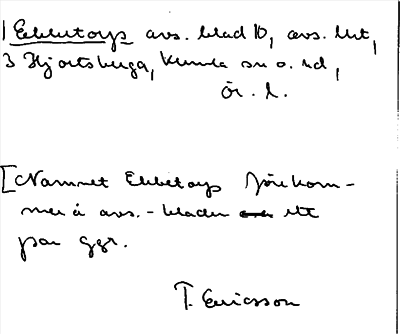 1 Ekbetorp avs. blad 10, avs. litt,
3 Hjortsberga, Kumla sn o. hd,
Ör. l.
[Namnet Ekbetorp förekom-
mer å avs.-bladen ett
par ggr.
T. Ericsson